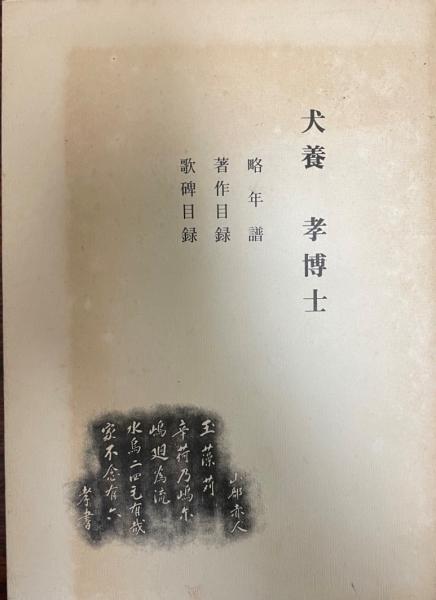 犬養 孝博士
略年譜
著作目録
歌碑目録
山部赤人
玉藻苅
辛荷乃嶋尓
嶋廻為流
水烏二四毛有哉
家不念有六
孝書